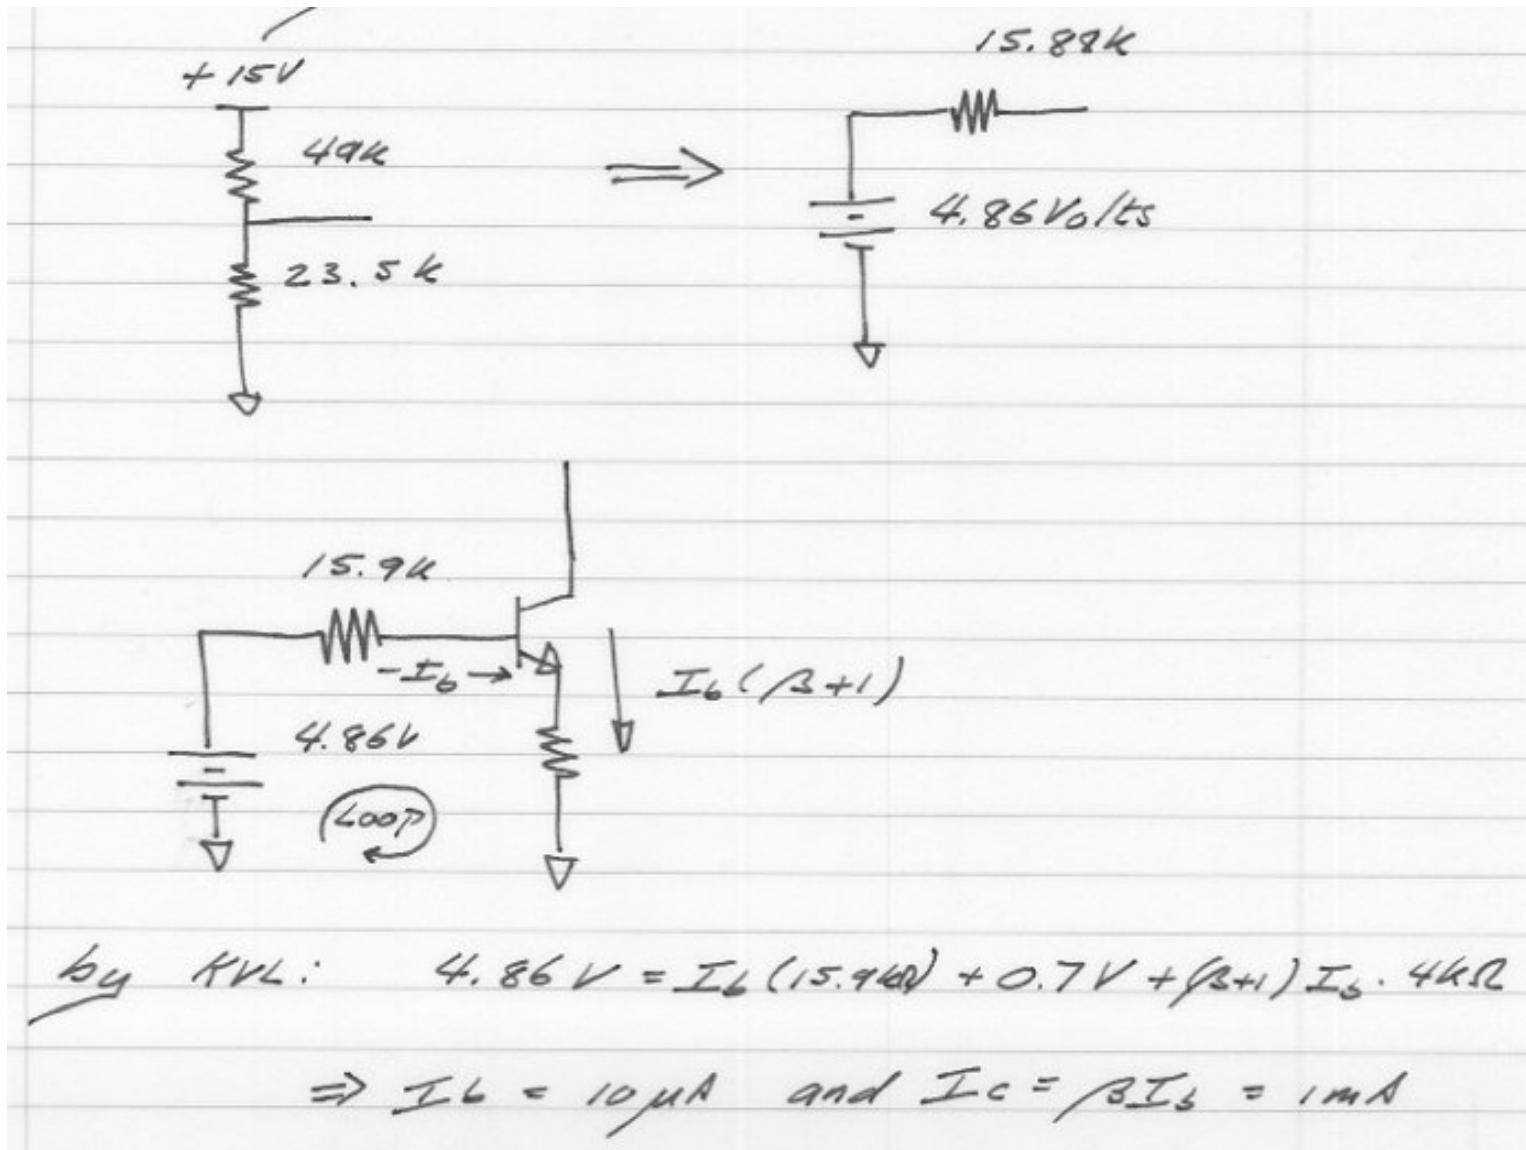 +15V
15.88K
49K
4.86 Volts
23.5K
15.9K
-Ib→
Ib(β+1)
4.86V
LOOP
by KVL: 4.86V = Ib(15.9kΩ) + 0.7V + (β+1)Ib · 4KΩ
⇒ Ib = 10μA and Ic = βIb = 1mA